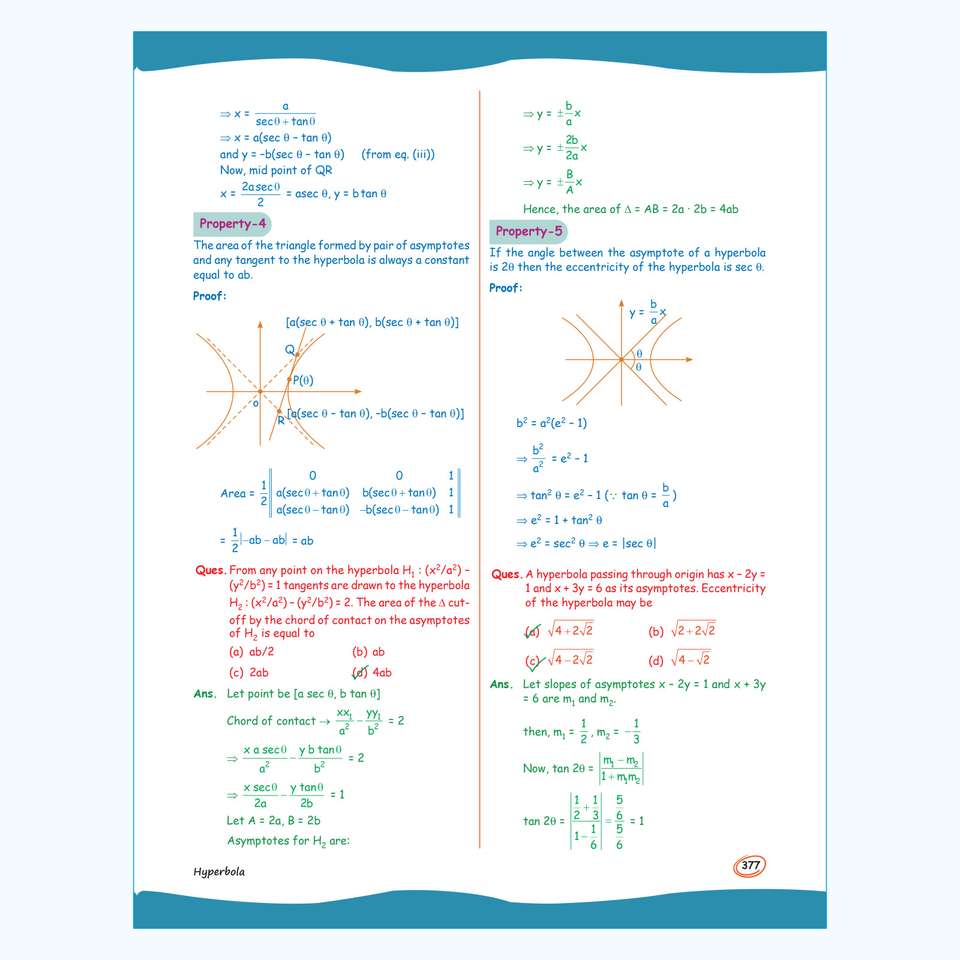 ⇒ x = a / (secθ + tanθ)
⇒ x = a(sec θ – tan θ)
and y = –b(sec θ – tan θ) (from eq. (iii))
Now, mid point of QR
x = 2a secθ / 2 = asec θ, y = b tan θ
Property-4
The area of the triangle formed by pair of asymptotes
and any tangent to the hyperbola is always a constant
equal to ab.
Proof:
[a(sec θ + tan θ), b(sec θ + tan θ)]
Q
P(θ)
o
R
[a(sec θ – tan θ), –b(sec θ – tan θ)]
Area = 1/2 || 0 0 1
a(secθ + tanθ) b(secθ + tanθ) 1
a(secθ – tanθ) –b(secθ – tanθ) 1 ||
= 1/2 |–ab – ab| = ab
Ques. From any point on the hyperbola H₁ : (x²/a²) –
(y²/b²) = 1 tangents are drawn to the hyperbola
H₂ : (x²/a²) – (y²/b²) = 2. The area of the Δ cut-
off by the chord of contact on the asymptotes
of H₂ is equal to
(a) ab/2 (b) ab
(c) 2ab (d) 4ab
Ans. Let point be [a sec θ, b tan θ]
Chord of contact → xx₁/a² – yy₁/b² = 2
⇒ x a secθ / a² – y b tanθ / b² = 2
⇒ x secθ / 2a – y tanθ / 2b = 1
Let A = 2a, B = 2b
Asymptotes for H₂ are:
⇒ y = ± b/a x
⇒ y = ± 2b/2a x
⇒ y = ± B/A x
Hence, the area of Δ = AB = 2a · 2b = 4ab
Property-5
If the angle between the asymptote of a hyperbola
is 2θ then the eccentricity of the hyperbola is sec θ.
Proof:
y = b/a x
θ
θ
b² = a²(e² – 1)
⇒ b²/a² = e² – 1
⇒ tan² θ = e² – 1 (∵ tan θ = b/a)
⇒ e² = 1 + tan² θ
⇒ e² = sec² θ ⇒ e = |sec θ|
Ques. A hyperbola passing through origin has x – 2y =
1 and x + 3y = 6 as its asymptotes. Eccentricity
of the hyperbola may be
(a) √(4 + 2√2) (b) √(2 + 2√2)
(c) √(4 – 2√2) (d) √(4 – √2)
Ans. Let slopes of asymptotes x – 2y = 1 and x + 3y
= 6 are m₁ and m₂.
then, m₁ = 1/2, m₂ = –1/3
Now, tan 2θ = |(m₁ – m₂) / (1 + m₁m₂)|
tan 2θ = |(1/2 + 1/3) / (1 – 1/6)| = (5/6) / (5/6) = 1
Hyperbola
377